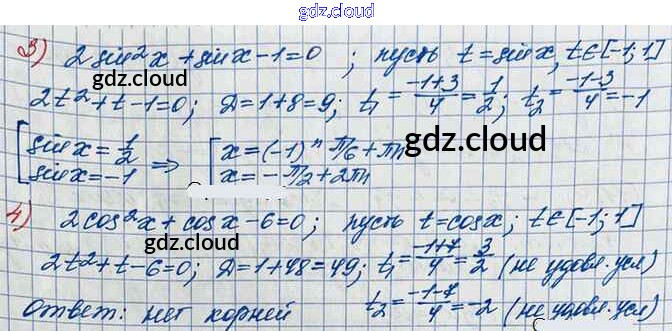 gdz.cloud
3) 2 sin²x + sin x - 1 = 0 ; пусть t = sin x, t ∈ [-1; 1]
gdz.cloud
2t² + t - 1 = 0; Д = 1 + 8 = 9; t₁ = (-1+3)/4 = 1/2; t₂ = (-1-3)/4 = -1
[ sin x = 1/2 ⇒ [ x = (-1)ⁿ π/6 + πn
gdz.cloud
sin x = -1 x = -π/2 + 2πn
4) 2 cos²x + cos x - 6 = 0 ; пусть t = cos x ; t ∈ [-1; 1]
gdz.cloud
2t² + t - 6 = 0; Д = 1 + 48 = 49; t₁ = (-1+7)/4 = 3/2 (не удовл. усл)
Ответ: нет корней t₂ = (-1-7)/4 = -2 (не удовл. усл)